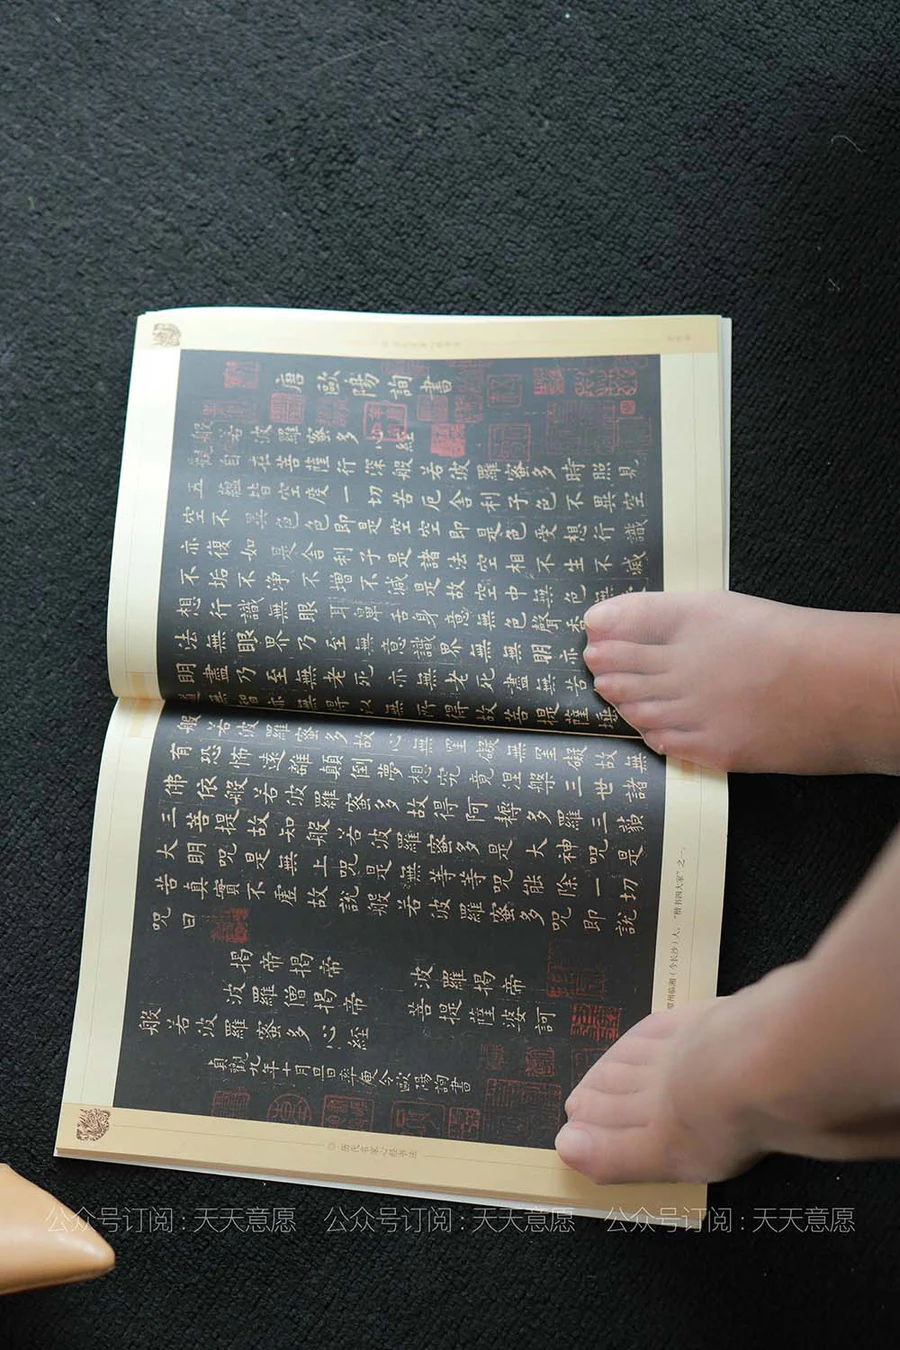 唐歐陽詢書
般若波羅蜜多心經
觀自在菩薩行深般若波羅蜜多時照見
五蘊皆空度一切苦厄舍利子色不異空
空不異色色即是空空即是色受想行識
亦復如是舍利子是諸法空相不生不滅
不垢不淨不增不減是故空中無色無
想行識無眼耳鼻舌身意無色聲香
法無眼界乃至無意識界無無明亦
明盡乃至無老死亦無老死盡無苦
道無智亦無得以無所得故菩提薩埵
般若波羅蜜多故心無罣礙無罣礙故無
有恐怖遠離顛倒夢想究竟涅槃三世諸
佛依般若波羅蜜多故得阿耨多羅三藐
三菩提故知般若波羅蜜多是大神咒是
大明咒是無上咒是無等等咒能除一切
苦真實不虛故說般若波羅蜜多咒即說
咒曰
揭帝揭帝 波羅揭帝
波羅僧揭帝 菩提薩婆訶
般若波羅蜜多心經
貞觀九年十月旦日率更令歐陽詢書
潭州临湘（今长沙）人。“楷书四大家”之一。
历代名家心经书法
公众号订阅：天天意愿 公众号订阅：天天意愿 公众号订阅：天天意愿